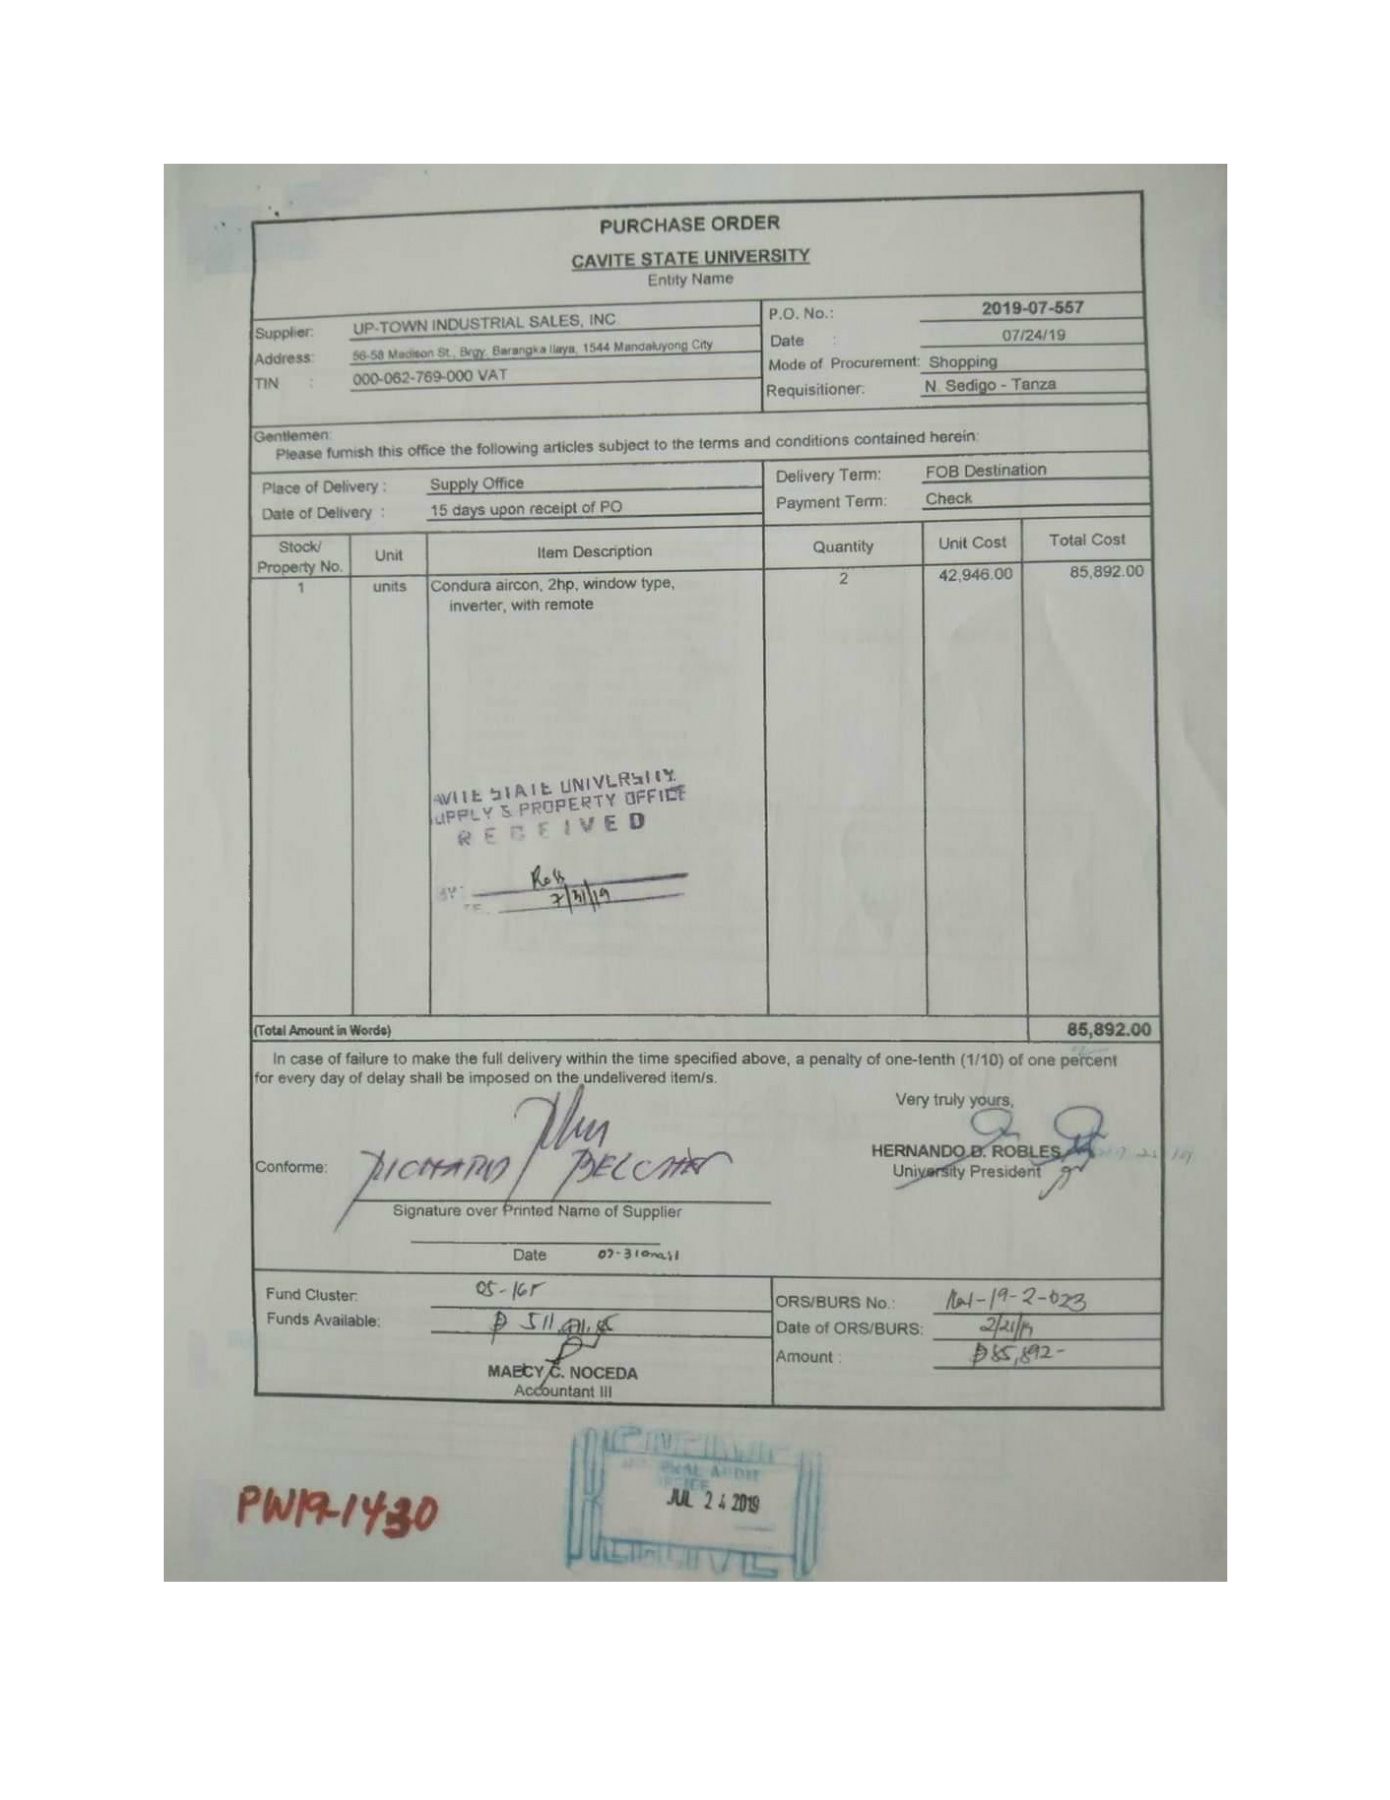 PURCHASE ORDER
CAVITE STATE UNIVERSITY
Entity Name
Supplier: UP-TOWN INDUSTRIAL SALES, INC.
Address: 56-58 Madison St., Brgy. Barangka Ilaya, 1544 Mandaluyong City
TIN : 000-062-769-000 VAT
P.O. No.: 2019-07-557
Date : 07/24/19
Mode of Procurement: Shopping
Requisitioner: N. Sedigo - Tanza
Gentlemen:
Please furnish this office the following articles subject to the terms and conditions contained herein:
Place of Delivery : Supply Office
Date of Delivery : 15 days upon receipt of PO
Delivery Term: FOB Destination
Payment Term: Check
Stock/ Property No. Unit Item Description Quantity Unit Cost Total Cost
1 units Condura aircon, 2hp, window type, 2 42,946.00 85,892.00
inverter, with remote
AVITE STATE UNIVERSITY
UPPLY & PROPERTY OFFICE
RECEIVED
BY:
7/31/19
(Total Amount in Words) 85,892.00
In case of failure to make the full delivery within the time specified above, a penalty of one-tenth (1/10) of one percent
for every day of delay shall be imposed on the undelivered item/s.
Very truly yours,
HERNANDO D. ROBLES
University President
Conforme: RICHARD BELCHER
Signature over Printed Name of Supplier
Date
Fund Cluster: 05-165
Funds Available:
MAECY C. NOCEDA
Accountant III
ORS/BURS No.:
Date of ORS/BURS:
Amount : ₱85,892-
JUL 24 2019